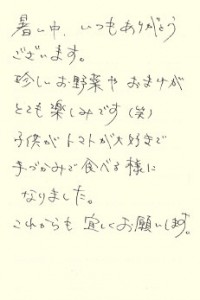 暑い中、いつもありがとう
ございます。
珍しいお野菜や おまけが
とても楽しみです(笑)
子供がトマトが大好きで
手づかみで食べる様に
なりました。
これからも 宜しくお願いします。